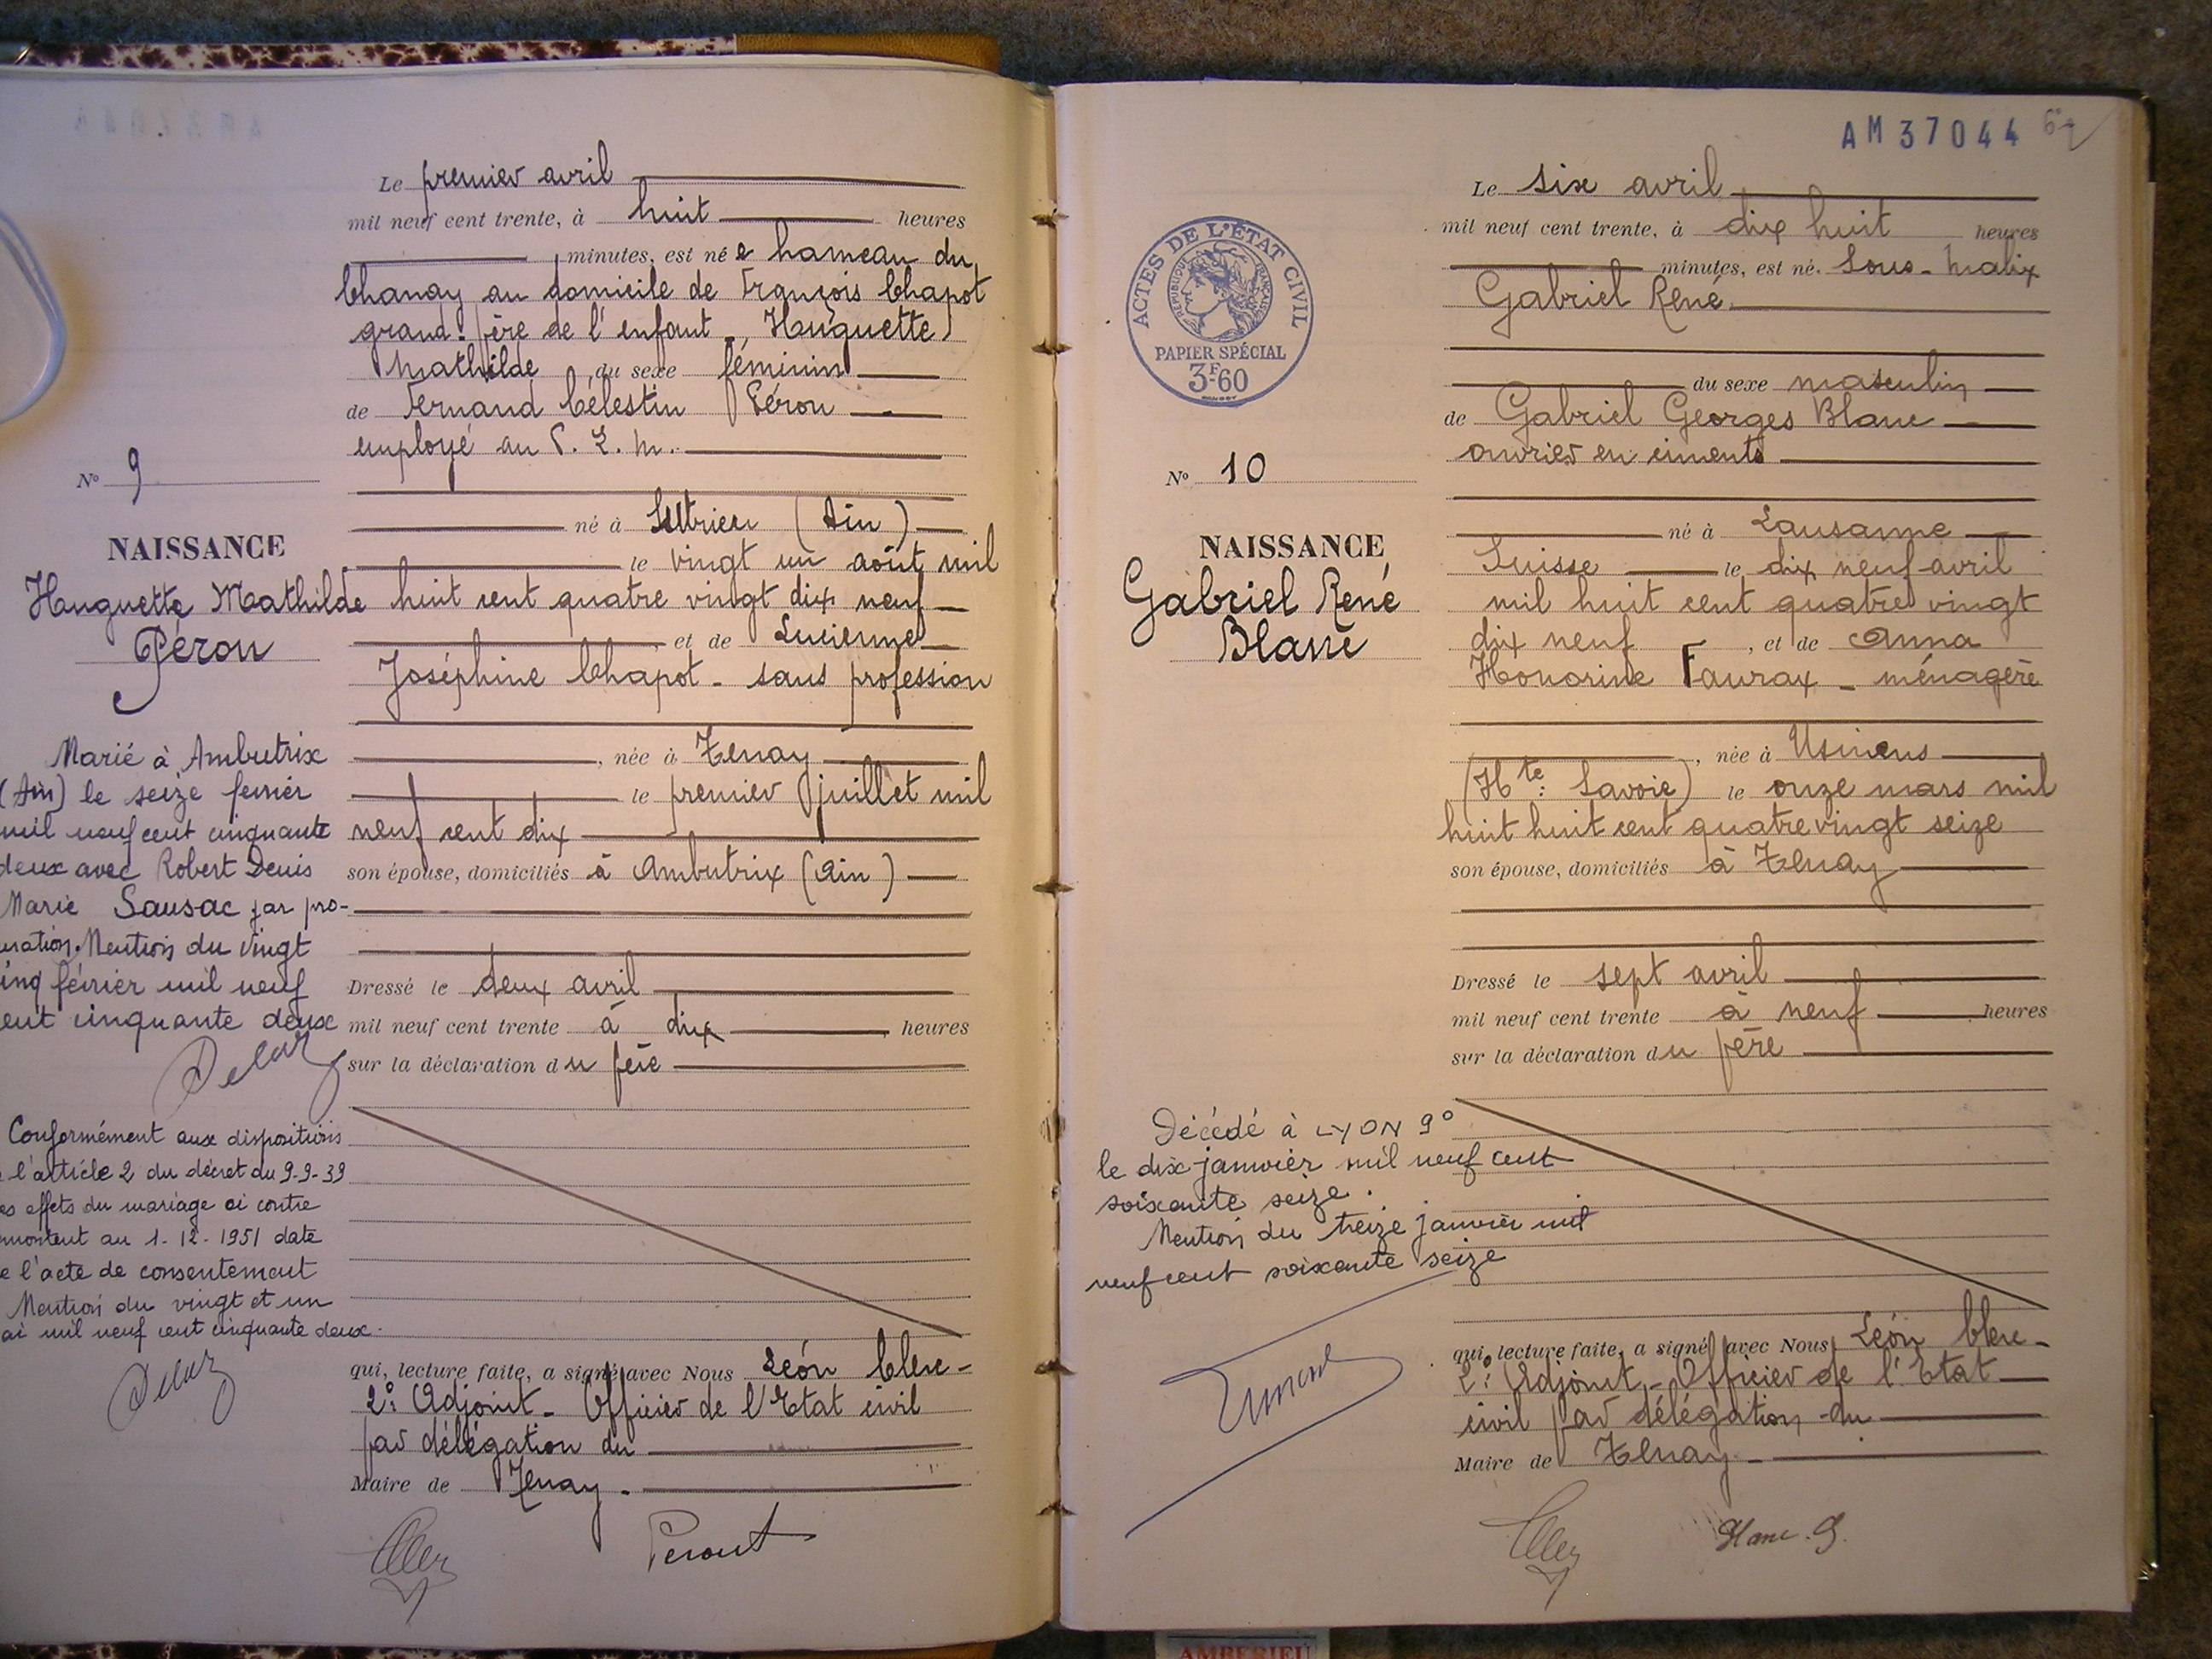 Le premier avril
mil neuf cent trente, à huit heures
minutes, est né e hameau du
Chanay au domicile de François Chapot
grand-père de l'enfant - Huguette
Mathilde du sexe féminin
de Fernand Célestin Péron
employé au P. L. M.
né à (Ain)
le vingt un août mil
huit cent quatre vingt dix neuf
et de Lucienne
Joséphine Chapot - sans profession
, née à Tenay
le premier juillet mil
neuf cent dix
son épouse, domiciliés à Ambutrix (Ain)
Dressé le deux avril
mil neuf cent trente à dix heures
sur la déclaration du père
qui, lecture faite, a signé avec Nous Léon Clerc -
2e Adjoint - Officier de l'Etat civil
par délégation du
Maire de Tenay.
Perout
No 9
NAISSANCE
Huguette Mathilde
Péron
Marié à Ambutrix
(Ain) le seize fevrier
mil neuf cent cinquante
deux avec Robert Denis
Marie Sausac par pro-
uration. Mention du vingt
inq février mil neuf
ent cinquante deux
Conformément aux dispositions
l'article 2 du décret du 9-9-39
es effets du mariage ci contre
montent au 1-12-1951 date
e l'acte de consentement
Mention du vingt et un
ai mil neuf cent cinquante deux.
AM37044
ACTES DE L'ÉTAT CIVIL
RÉPUBLIQUE FRANÇAISE
PAPIER SPÉCIAL
3F60
No 10
NAISSANCE
Gabriel René
Blanc
Le six avril
mil neuf cent trente, à dix huit heures
minutes, est né. Sous-Malix
Gabriel René
du sexe masculin
de Gabriel Georges Blanc
ouvrier en ciments
né à Lausanne
Suisse le dix neuf avril
mil huit cent quatre vingt
dix neuf, et de Anna
Honorine Faurax - ménagère
, née à Usinens
(Hte: Savoie) le onze mars mil
huit huit cent quatre vingt seize
son épouse, domiciliés à Tenay
Dressé le sept avril
mil neuf cent trente à neuf heures
sur la déclaration du père
Décédé à LYON 9°
le dix janvier mil neuf cent
soixante seize.
Mention du treize janvier mil
neuf cent soixante seize
qui, lecture faite, a signé avec Nous Léon Clerc -
2e Adjoint - Officier de l'Etat
civil par délégation du
Maire de Tenay -
Blanc. G.
AMBERIEU